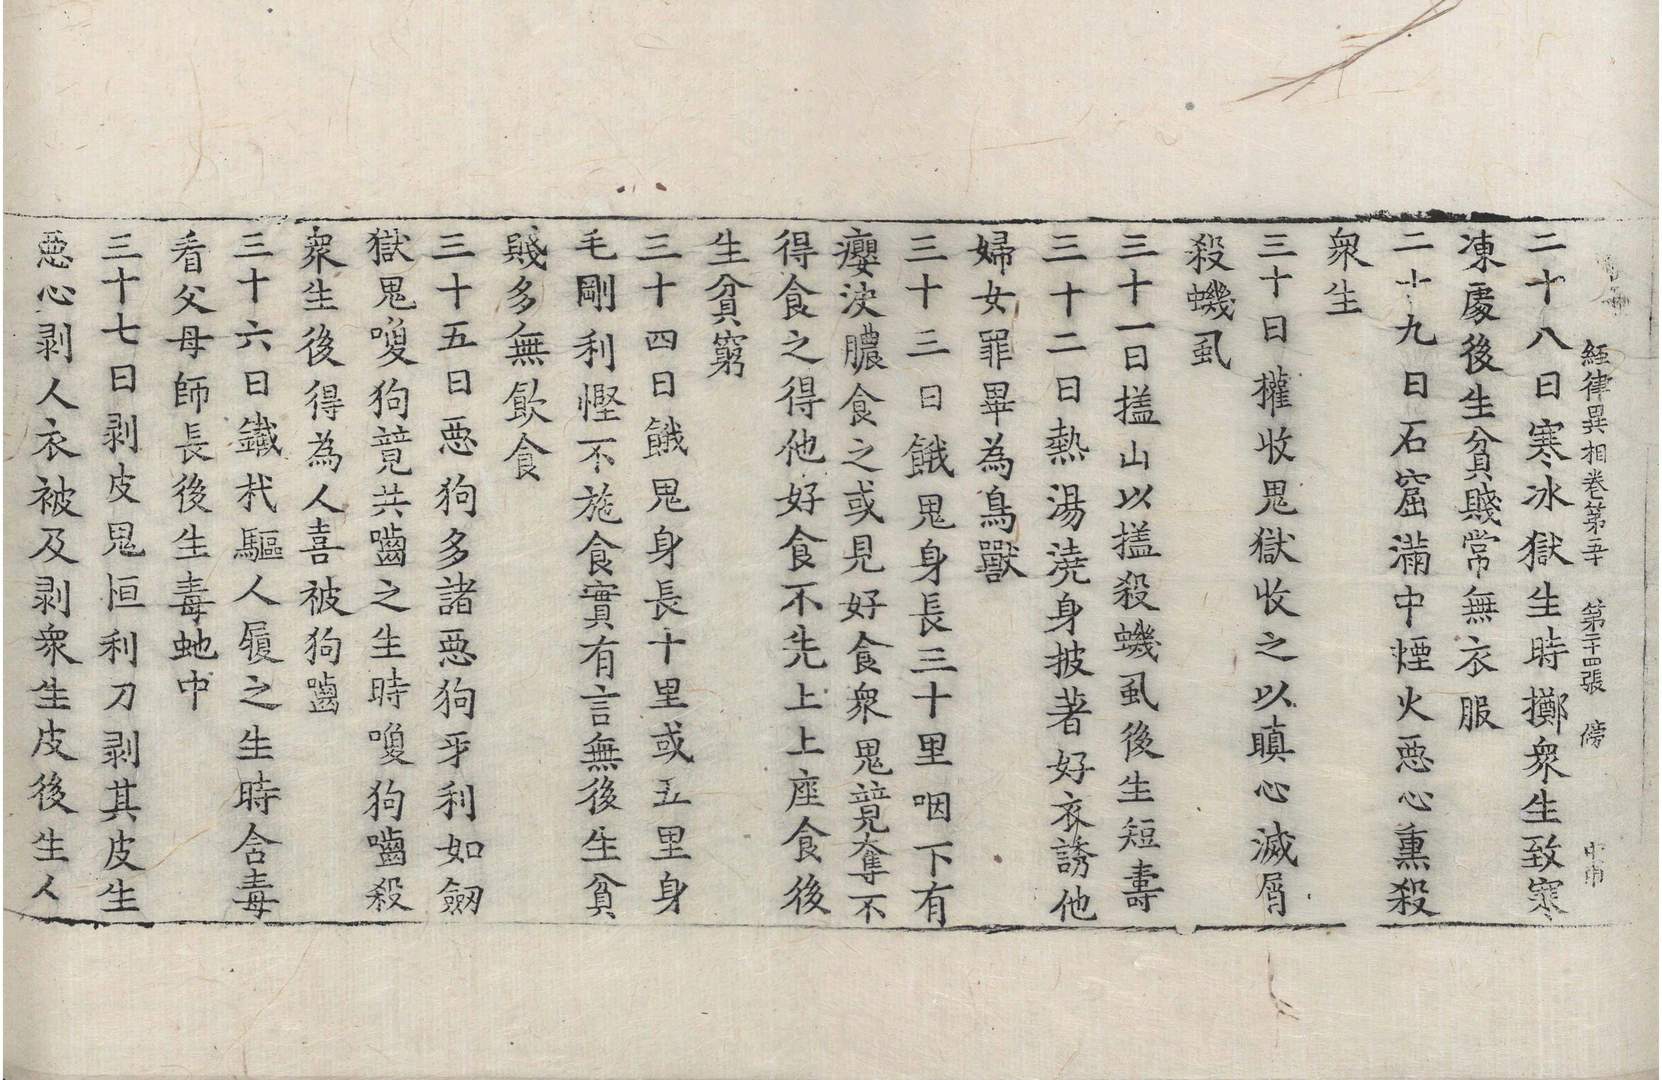 經律異相卷第五十 第二十四張 傍
二十八曰寒冰獄生時擲衆生致寒
凍處後生貧賤常無衣服
二十九曰石窟滿中煙火惡心熏殺
衆生
三十曰權收鬼獄收之以瞋心滅屑
殺蟣虱
三十一曰搕山以搕殺蟣虱後生短壽
三十二曰熱湯澆身披著好衣誘他
婦女罪畢為鳥獸
三十三曰餓鬼身長三十里咽下有
癭決膿食之或見好食衆鬼競奪不
得食之得他好食不先上上座食後
生貧窮
三十四曰餓鬼身長十里或五里身
毛剛利慳不施食實有言無後生貧
賤多無飲食
三十五曰惡狗多諸惡狗牙利如劒
獄鬼嗾狗競共嚙之生時嗾狗嚙殺
衆生後得為人喜被狗嚙
三十六曰鐵杙驅人履之生時含毒
看父母師長後生毒虵中
三十七曰剥皮鬼恒利刀剥其皮生
惡心剥人衣被及剥衆生皮後生人